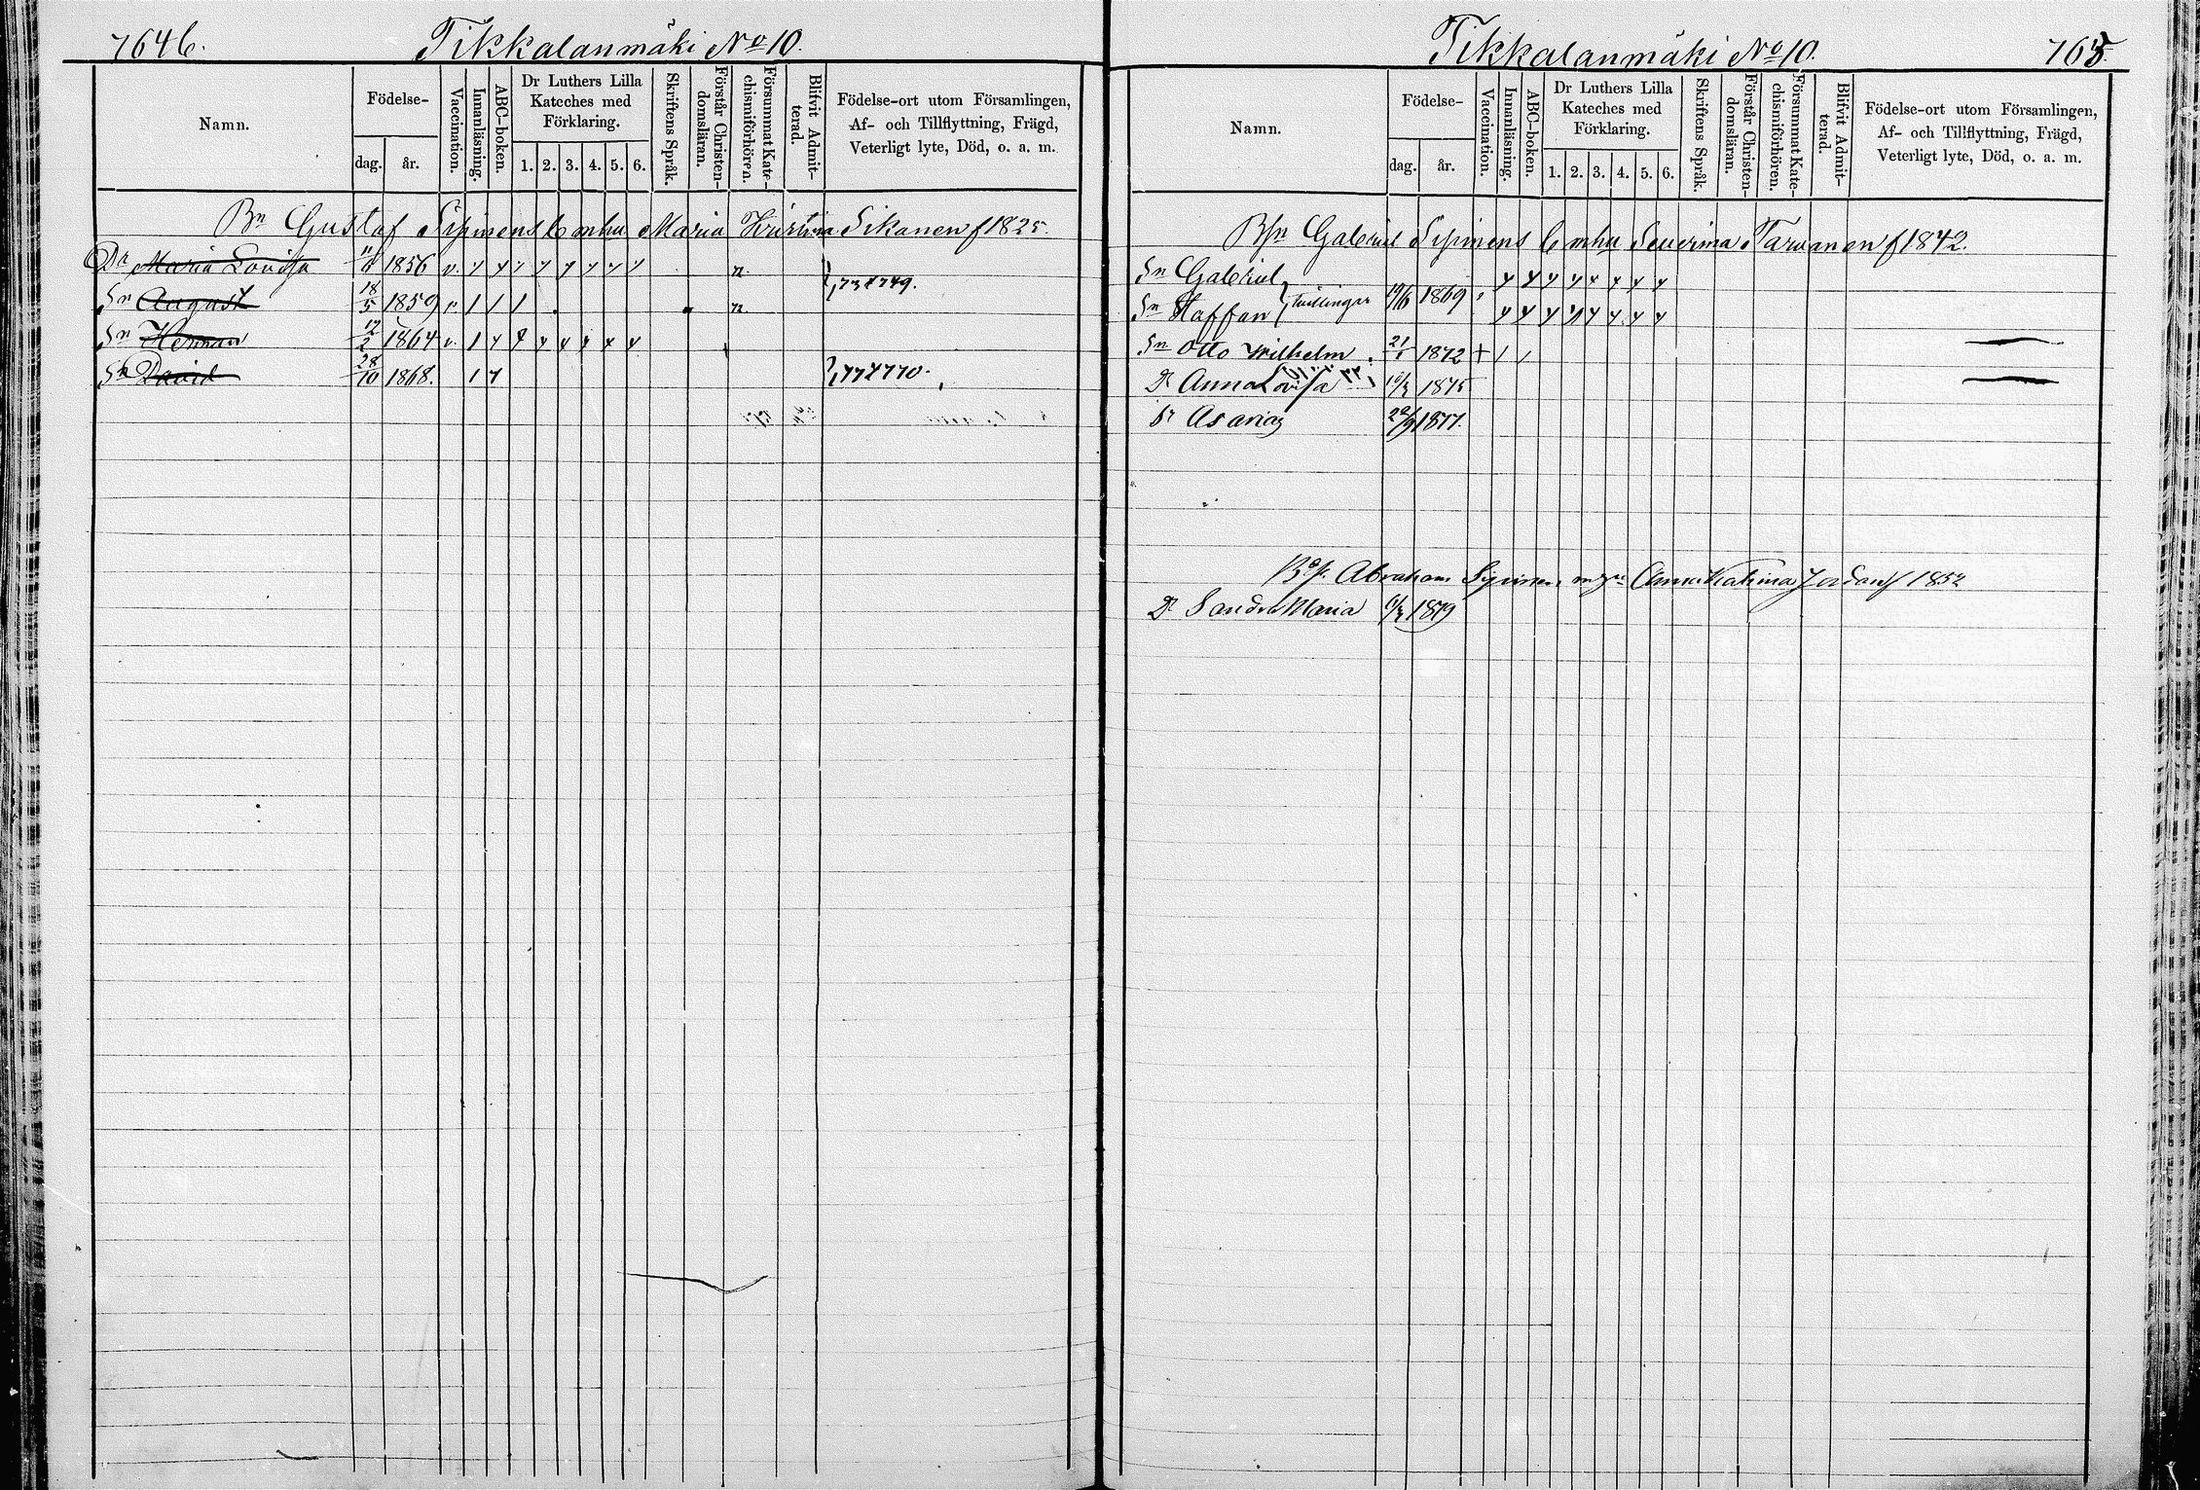 764b.
Tikkalanmäki No 10.
Namn.
Födelse-
dag.
år.
Vaccination.
Innanläsning.
ABC-boken.
Dr Luthers Lilla
Kateches med
Förklaring.
1. 2. 3. 4. 5. 6.
Skriftens Språk.
Förstår Christen-
domsläran.
Försummat Kate-
chismiförhören.
Blifvit Admit-
terad.
Födelse-ort utom Församlingen,
Af- och Tillflyttning, Frägd,
Veterligt lyte, Död, o. a. m.
Bn Gustaf Sipinens Maria Kristina Sikanen f 1825.
Dr Maria Lovisa 1856 v. n.
Sn August 18/5 1859 v. n.
Sn Herman 12/2 1864 v.
Sn David 28/10 1868.
Tikkalanmäki No 10.
765.
Namn.
Födelse-
dag.
år.
Vaccination.
Innanläsning.
ABC-boken.
Dr Luthers Lilla
Kateches med
Förklaring.
1. 2. 3. 4. 5. 6.
Skriftens Språk.
Förstår Christen-
domsläran.
Försummat Kate-
chismiförhören.
Blifvit Admit-
terad.
Födelse-ort utom Församlingen,
Af- och Tillflyttning, Frägd,
Veterligt lyte, Död, o. a. m.
Gabriel Sipinens Severina Tarvanen f 1842.
Sn Gabriel
Sn Staffan tvillingar 19/6 1869
Sn Otto Wilhelm 21/1 1872
Dr Anna Lovisa 1875
Sr Asarias 1877.
Abraham Sipinen Anna Katrina Jordan f 1852
Dr Sandra Maria 1879